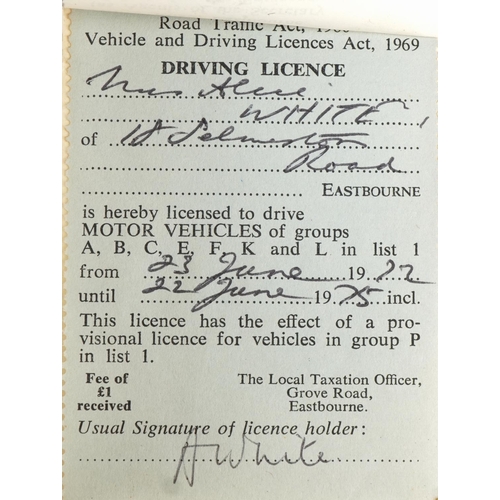 Road Traffic Act,
Vehicle and Driving Licences Act, 1969
DRIVING LICENCE
Mrs Alice
WHITE,
of 18 Selmeston
Road
EASTBOURNE
is hereby licensed to drive
MOTOR VEHICLES of groups
A, B, C, E, F, K and L in list 1
from 23 June 1972
until 22 June 1975 incl.
This licence has the effect of a pro-
visional licence for vehicles in group P
in list 1.
Fee of £1 received
The Local Taxation Officer,
Grove Road,
Eastbourne.
Usual Signature of licence holder:
A White